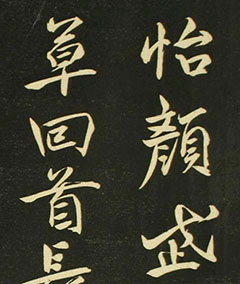 怡顏
草回首長